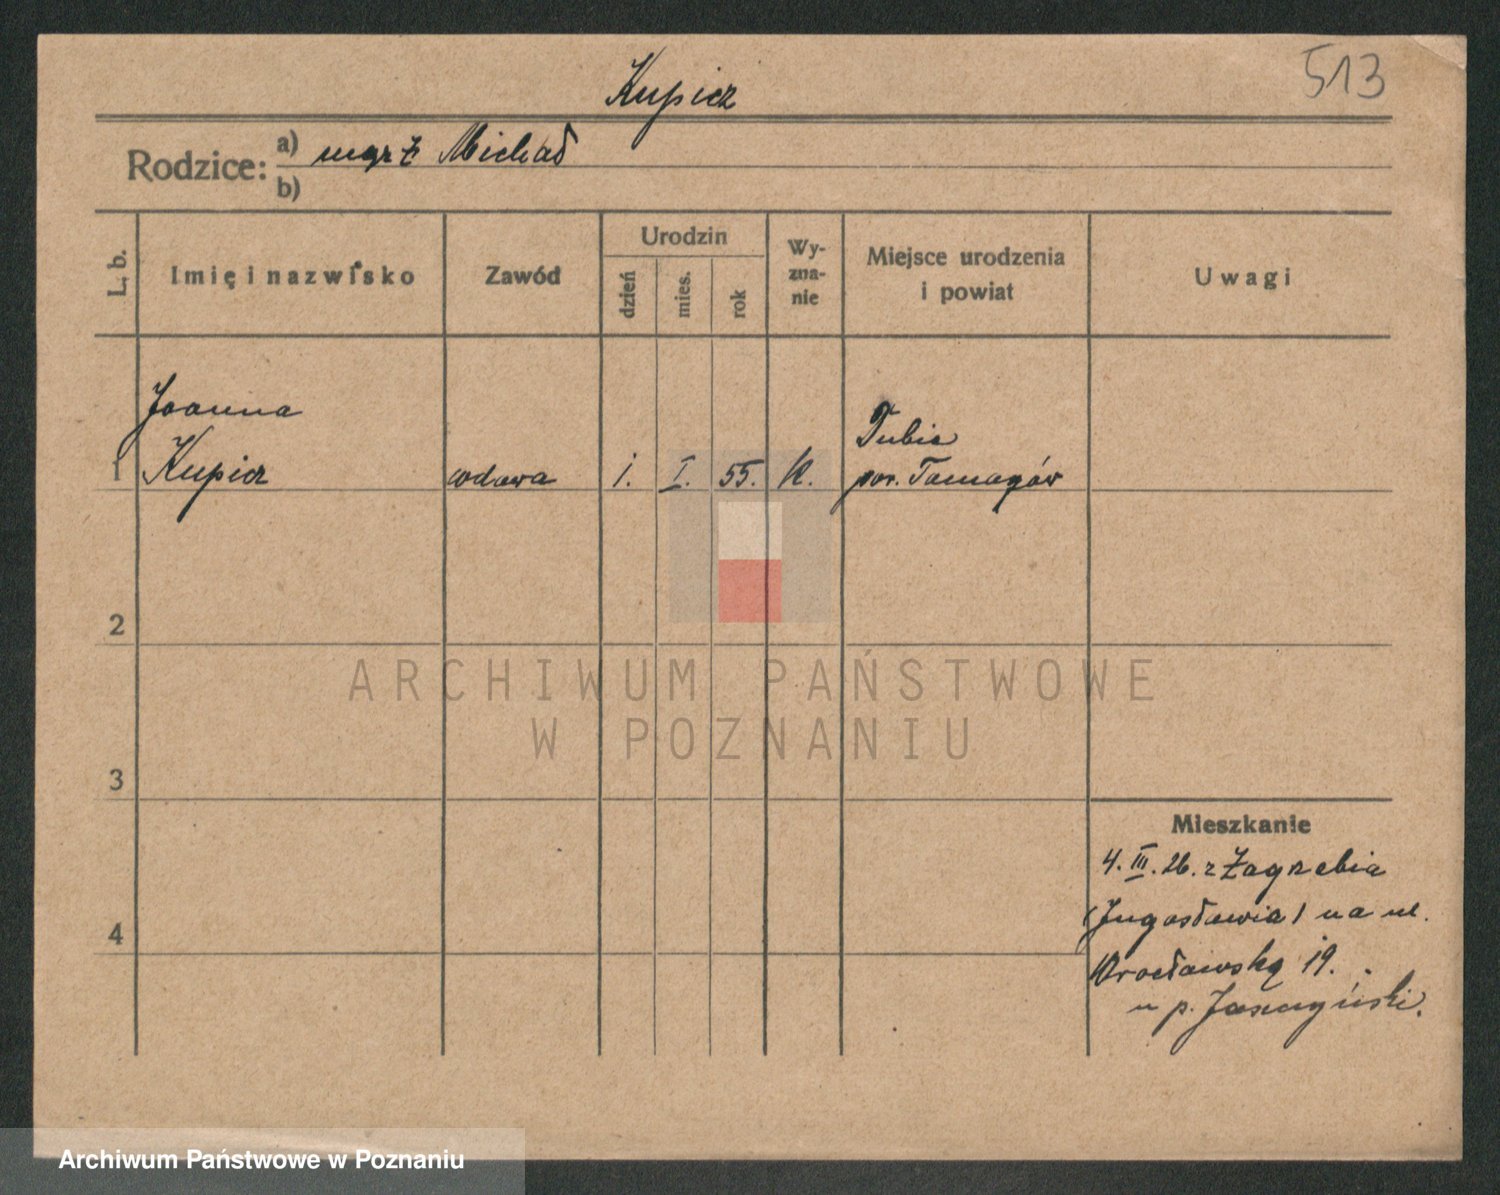 513
Kupicz
Rodzice: a) mąż Michał
b)
L. b.
Imię i nazwisko
Zawód
Urodzin
dzień
mies.
rok
Wy-
zna-
nie
Miejsce urodzenia
i powiat
Uwagi
Joanna
Tubie
1 Kupicz wdowa 1. I. 55. k. pow.
2
3
4
Mieszkanie
4. III. 26. z Zagrzebia
(Jugosławia) na ul.
Wrocławską 19.
u p.
ARCHIWUM PAŃSTWOWE
W POZNANIU
Archiwum Państwowe w Poznaniu